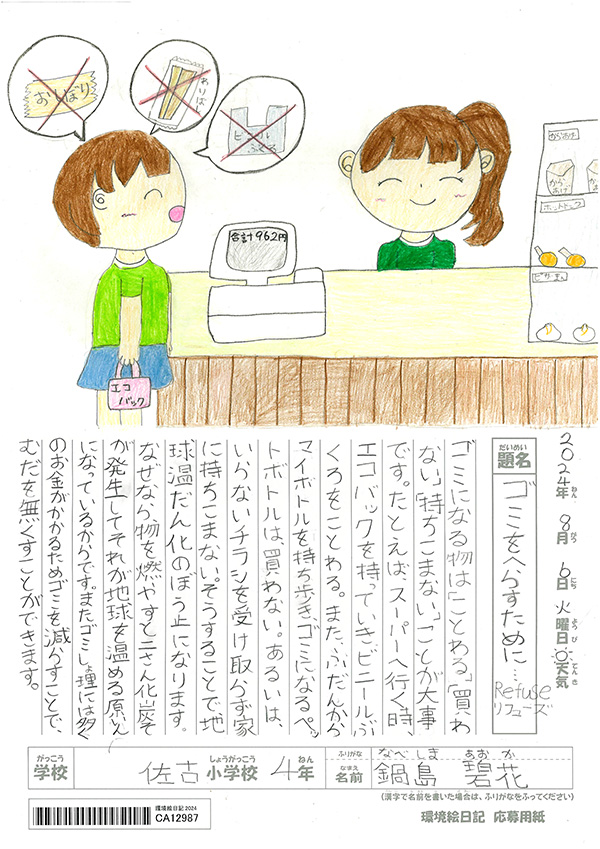 おしぼり
わりばし
ビニール
ふくろ
合計962円
からあげ
からあげ
からあげ
ホットドック
ピザーまん
エコ
バック
2024年 8月 6日 火曜日 天気
ねん がつ にち ようび てんき
だいめい
題名
ゴミをへらすために…
Refuse
リフューズ
ゴミになる物は「ことわる」「買わ
ない」「持ちこまない」ことが大事
です。たとえば、スーパーへ行く時、
エコバックを持っていきビニールぶ
くろをことわる。また、ふだんから
マイボトルを持ち歩き、ゴミになるペッ
トボトルは、買わない。あるいは、
いらないチラシを受け取らず家
に持ちこまない。そうすることで地
球温だん化のぼう止になります。
なぜなら、物を燃やすと二さん化炭そ
が発生してそれが地球を温める原いん
になっているからです。またゴミしょ理には多く
のお金がかかるためゴミを減らすことで、
むだを無くすことができます。
がっこう
学校
佐古
しょうがっこう
小学校
4
ねん
年
ふりがな
なべしま あおか
なまえ
名前
鍋島 碧花
(漢字で名前を書いた場合は、ふりがなをふってください)
環境絵日記2024
CA12987
環境絵日記 応募用紙